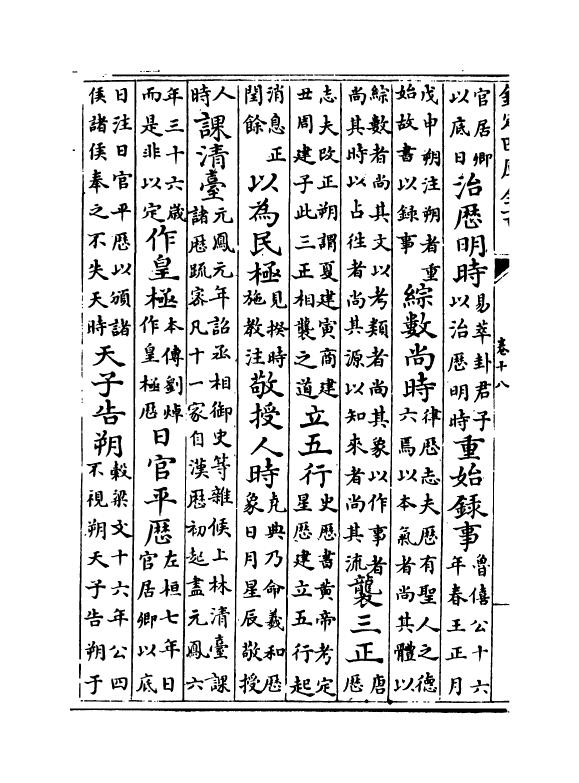 欽定四庫全書
卷十八
官居卿以底日治歷明時易萃卦君子以治歷明時重始録事魯僖公十六年春王正月
戊申朔注朔者重始故書以録事綜數尚時律歷志夫歷有聖人之德六焉以本氣者尚其體以
綜數者尚其文以考類者尚其象以作事者尚其時以占往者尚其源以知來者尚其流襲三正唐歷
志夫改正朔謂夏建寅商建丑周建子此三正相襲之道立五行史歷書黄帝考定星歷建立五行起
消息正閏餘以為民極見揆時施教注敬授人時堯典乃命羲和歷象日月星辰敬授
人時課清臺元鳳元年詔丞相御史等雜候上林清臺課諸歷疏宻凡十一家自漢歷初起盡元鳳六
年三十六歳而是非以定作皇極本傳劉焯作皇極歷日官平歷左桓七年日官居卿以底
日注日官平歷以頒諸侯諸侯奉之不失天時天子告朔榖梁文十六年公四不視朔天子告朔于